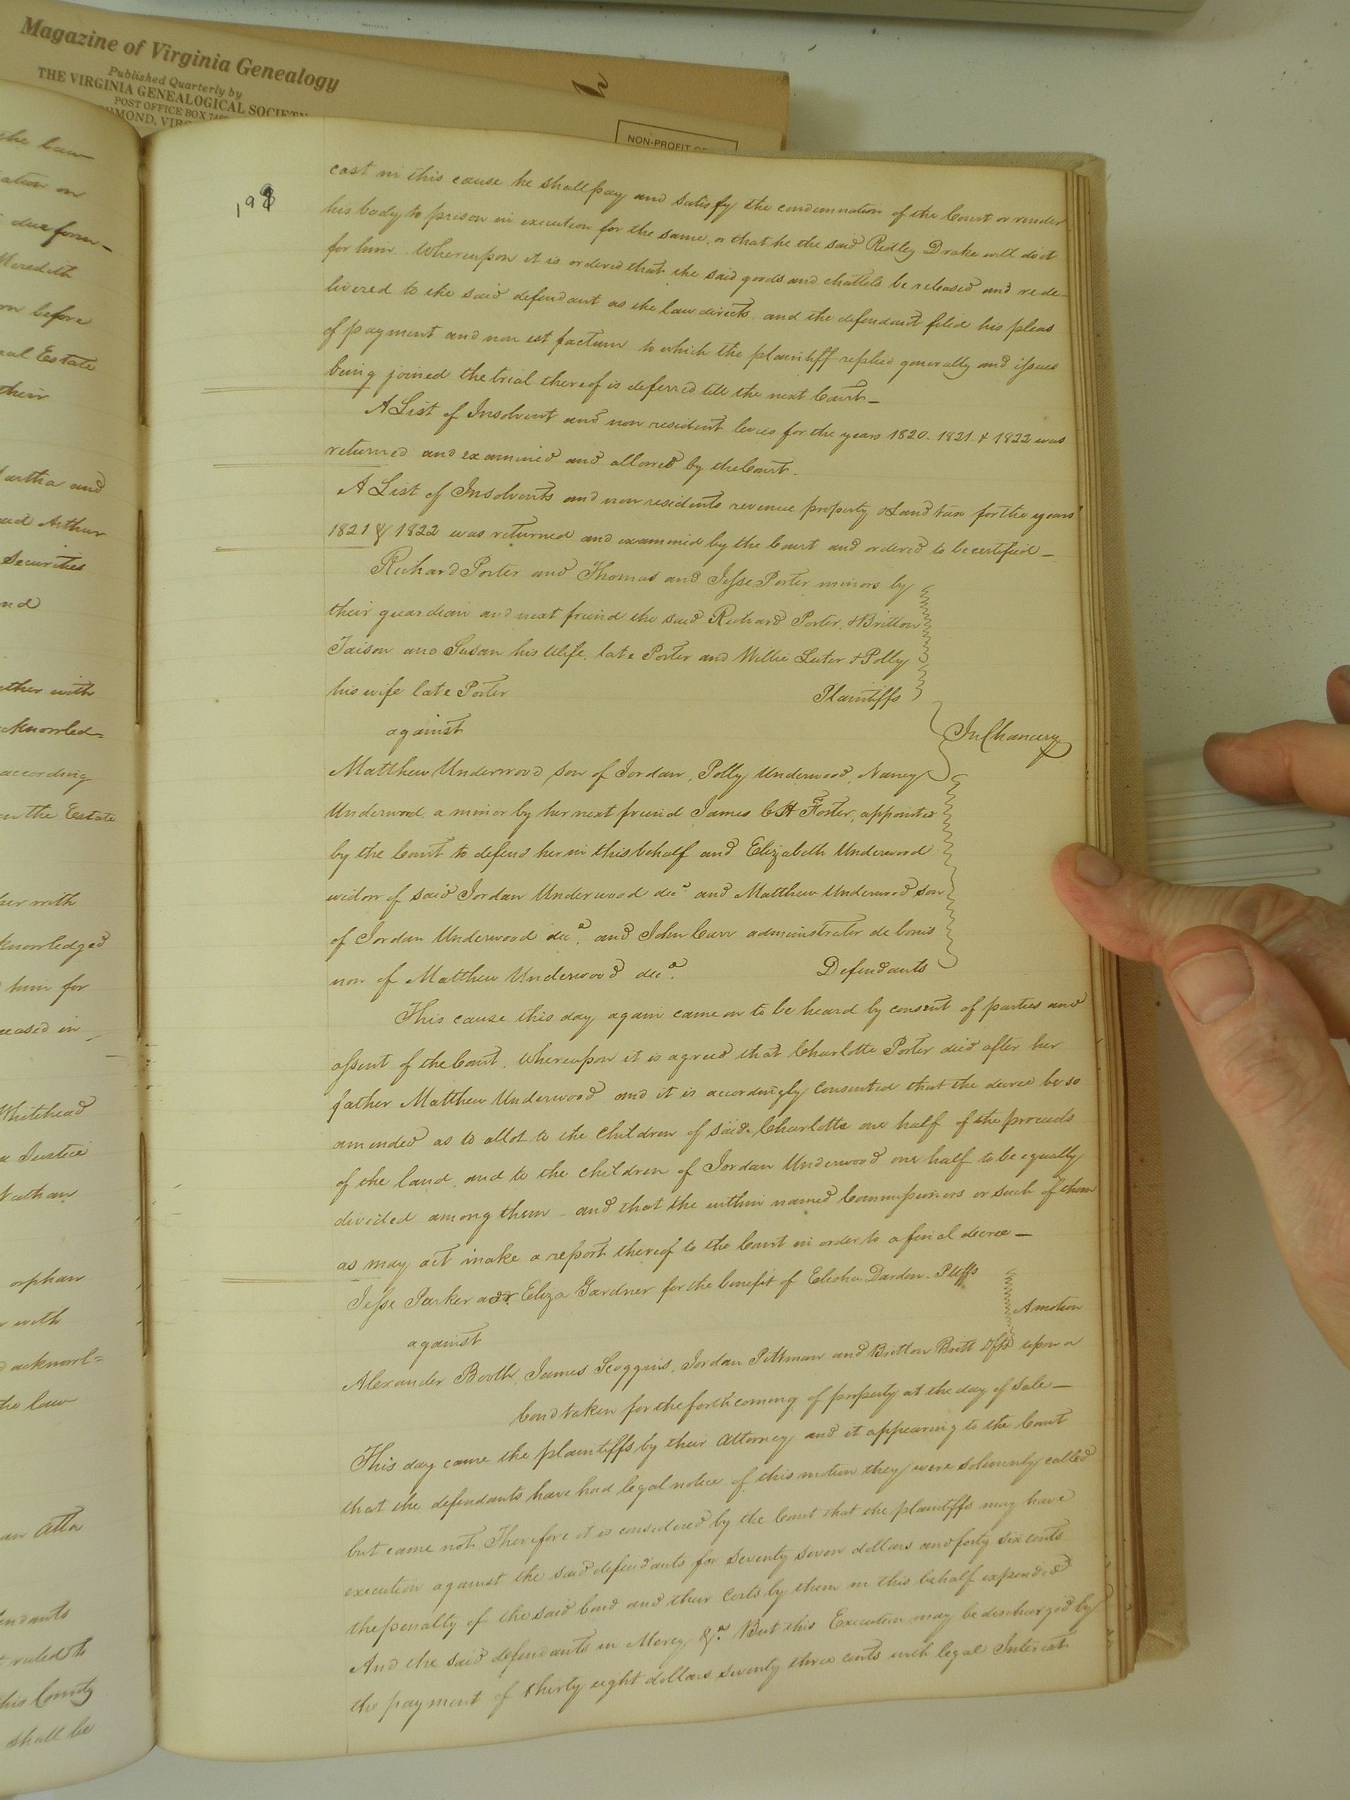 Magazine of Virginia Genealogy
Published Quarterly by
THE VIRGINIA GENEALOGICAL SOCIETY
POST OFFICE BOX
NON-PROFIT
198
cast in this cause he shall pay and satisfy the condemnation of the Court or render
his body to prison in execution for the same, or that he the said Ridley Drake will do it
for him. Whereupon it is ordered that the said goods and chattels be released and rede-
livered to the said defendant as the law directs and the defendant filed his pleas
of payment and non est factum to which the plaintiff replied generally and issues
being joined the trial thereof is deferred till the next Court
A List of Insolvent and non resident levies for the years 1820. 1821. & 1822 was
returned and examined and allowed by the Court.
A List of Insolvents and non residents revenue property & Land tax for the years
1821 & 1822 was returned and examined by the Court and ordered to be certified
Richard Porter and Thomas and Jesse Porter minors by
their guardian and next friend the said Richard Porter, & Britton
and Susan his Wife, late Porter and Willie Luter & Polly
his wife late Porter Plaintiffs
against
In Chancery
Matthew Underwood son of Jordan, Polly Underwood, Nancy
Underwood a minor by her next friend James C H Foster, appointed
by the Court to defend her in this behalf and Elizabeth Underwood
widow of said Jordan Underwood decd and Matthew Underwood son
of Jordan Underwood decd. and John Carr administrator de bonis
non of Matthew Underwood decd. Defendants
This cause this day again came on to be heard by consent of parties and
assent of the Court. Whereupon it is agreed that Charlotte Porter died after her
father Matthew Underwood and it is accordingly consented that the decree be so
amended as to allot to the children of said Charlotte one half of the proceeds
of the land and to the children of Jordan Underwood one half to be equally
divided among them and that the within named Commissioners or such of them
as may act make a report thereof to the Court in order to a final decree
Jesse Parker adr Eliza Gardner for the benefit of Elisha Darden. Pltffs
against
A motion
Alexander Booth, James Scoggins, Jordan Pittman and Britton Britt Dfts upon a
bond taken for the forthcoming of property at the day of Sale
This day came the plaintiffs by their attorney and it appearing to the Court
that the defendants have had legal notice of this motion they were solemnly called
but came not. Therefore it is considered by the Court that the plaintiffs may have
execution against the said defendants for seventy seven dollars and forty six cents
the penalty of the said bond and their costs by them in this behalf expended
And the said defendants in Mercy &c. But this Execution may be discharged by
the payment of thirty eight dollars seventy three cents with legal Interest